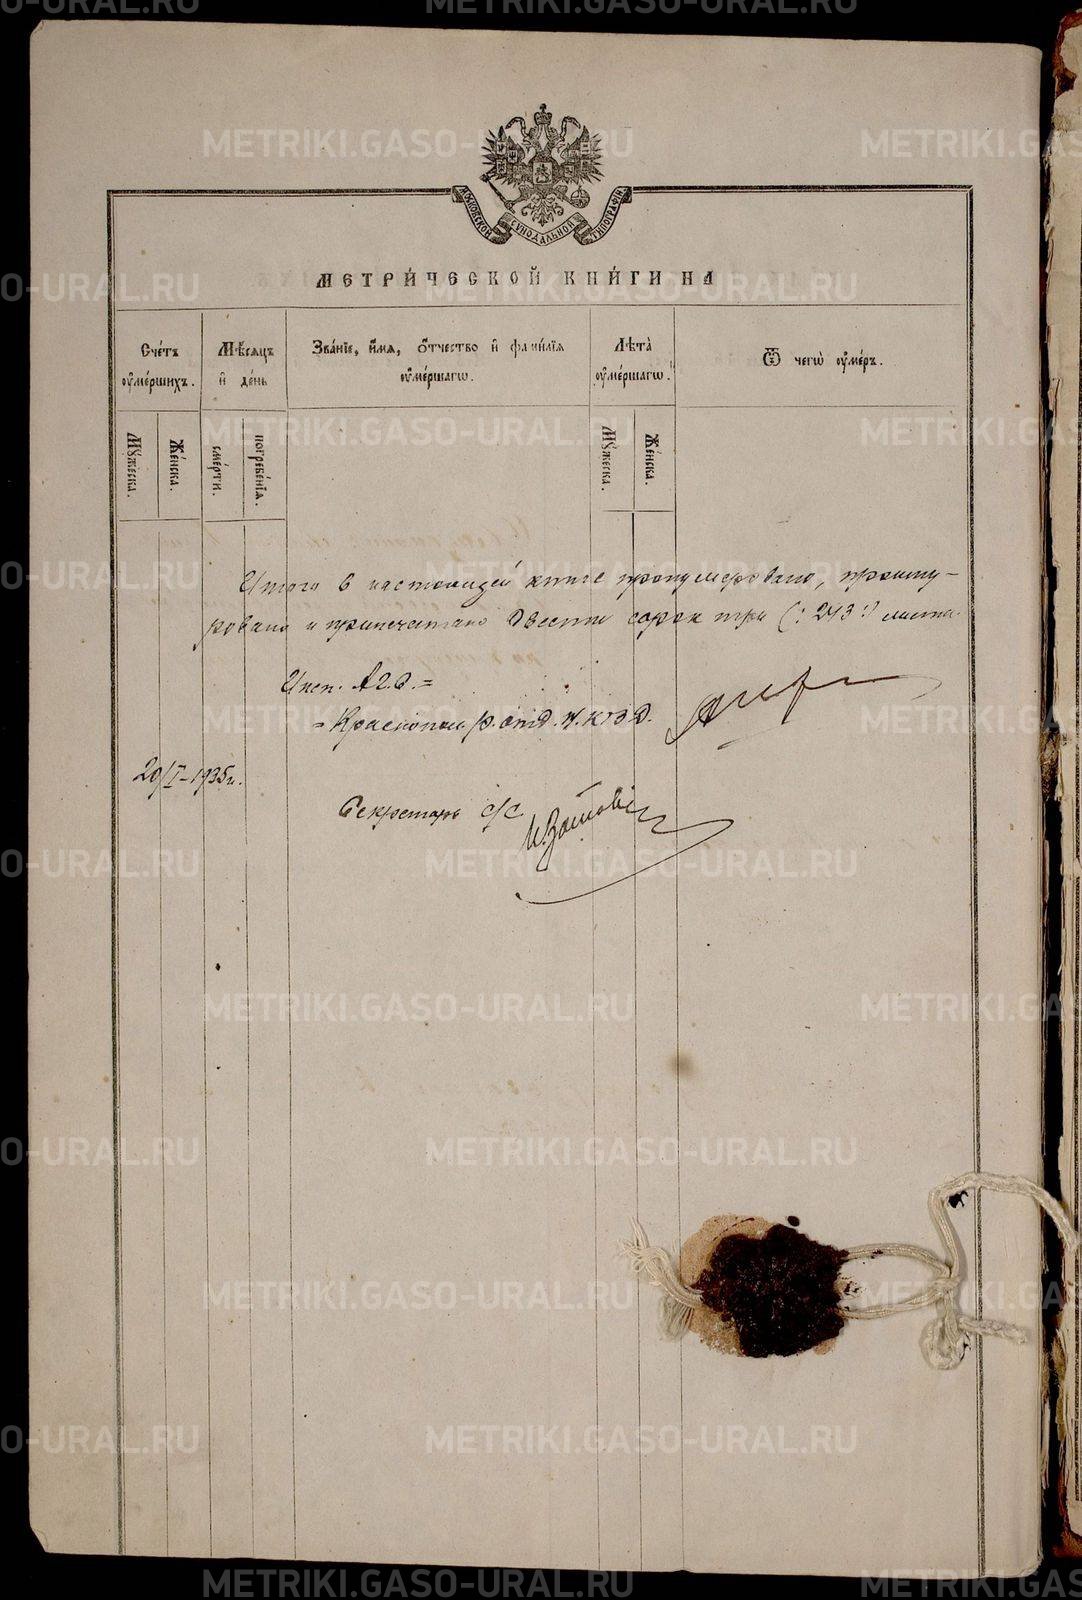 МОСКОВСКОЙ СѴНОДАЛЬНОЙ ТИПОГРАФІИ.
МЕТРИ́ЧЕСКОЙ КНИ́ГИ НА
Сче́тъ оумéршихъ.
Мѣ́сяцъ и҆ де́нь
Зва́нїе, и҆́мя, о҆́тчество и҆ фами́лїя оумéршагѡ.
Лѣ́та оумéршагѡ.
Ѿ чегѡ̀ оу́меръ.
Мꙋ́жеска.
Же́нска.
сме́рти.
погребе́нїя.
Мꙋ́жеска.
Же́нска.
Итого в настоящей книге пронумеровано, прошну-
ровано и припечатано двести сорок три (:243:) листа.
Инсп. АГС.=
=Краснопол. р. отд. Н.К.В.Д.
20/I-1935 г.
Секретарь с/с
METRIKI.GASO-URAL.RU